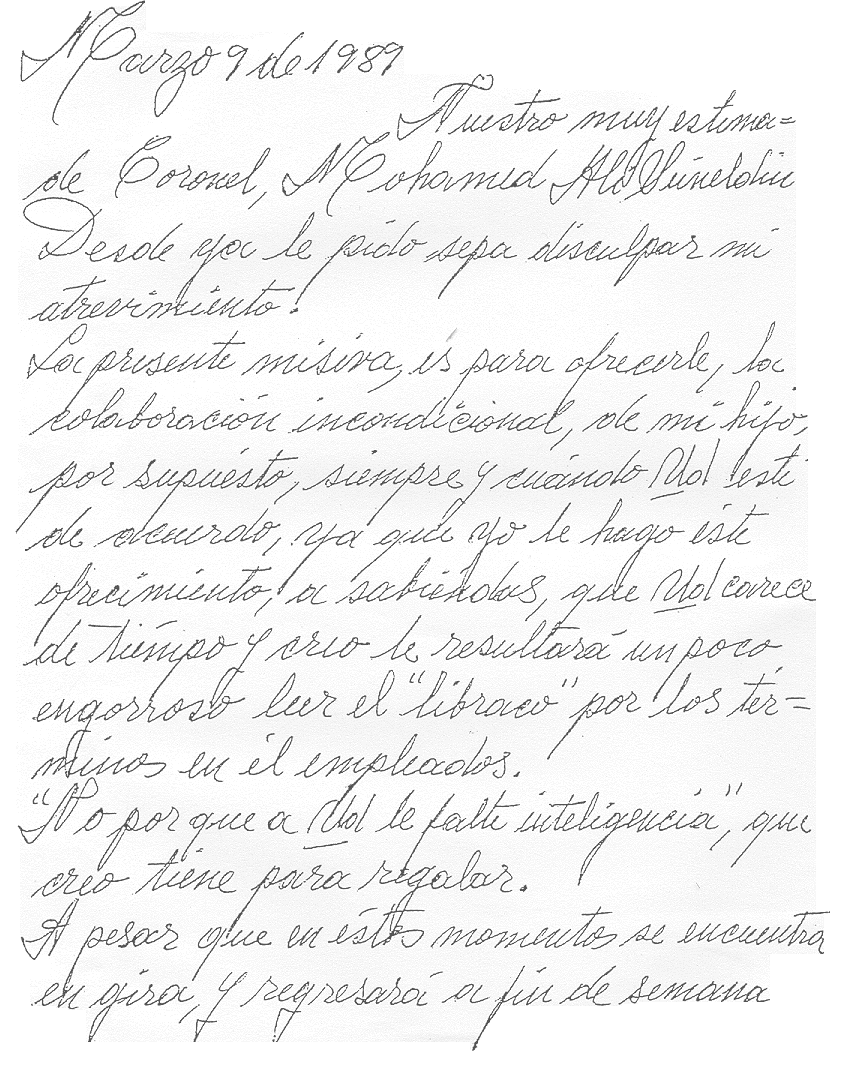 Marzo 9 de 1989
Nuestro muy estima=
do Coronel, Mohamed Alí Seineldín
Desde ya le pido sepa disculpar mi
atrevimiento.
La presente misiva, es para ofrecerle, la
colaboración incondicional, de mi hijo,
por supuésto, siempre y cuándo Ud esté
de acuerdo, ya que yo le hago éste
ofrecimiento, a sabiendas, que Ud carece
de tiémpo y creo le resultará un poco
engorroso leer el "libraco" por los tér=
minos en él empleados.
"No por que a Ud le falte inteligencia", que
creo tiene para regalar.
A pesar que en éstos momentos se encuentra
en gira, y regresará a fin de semana